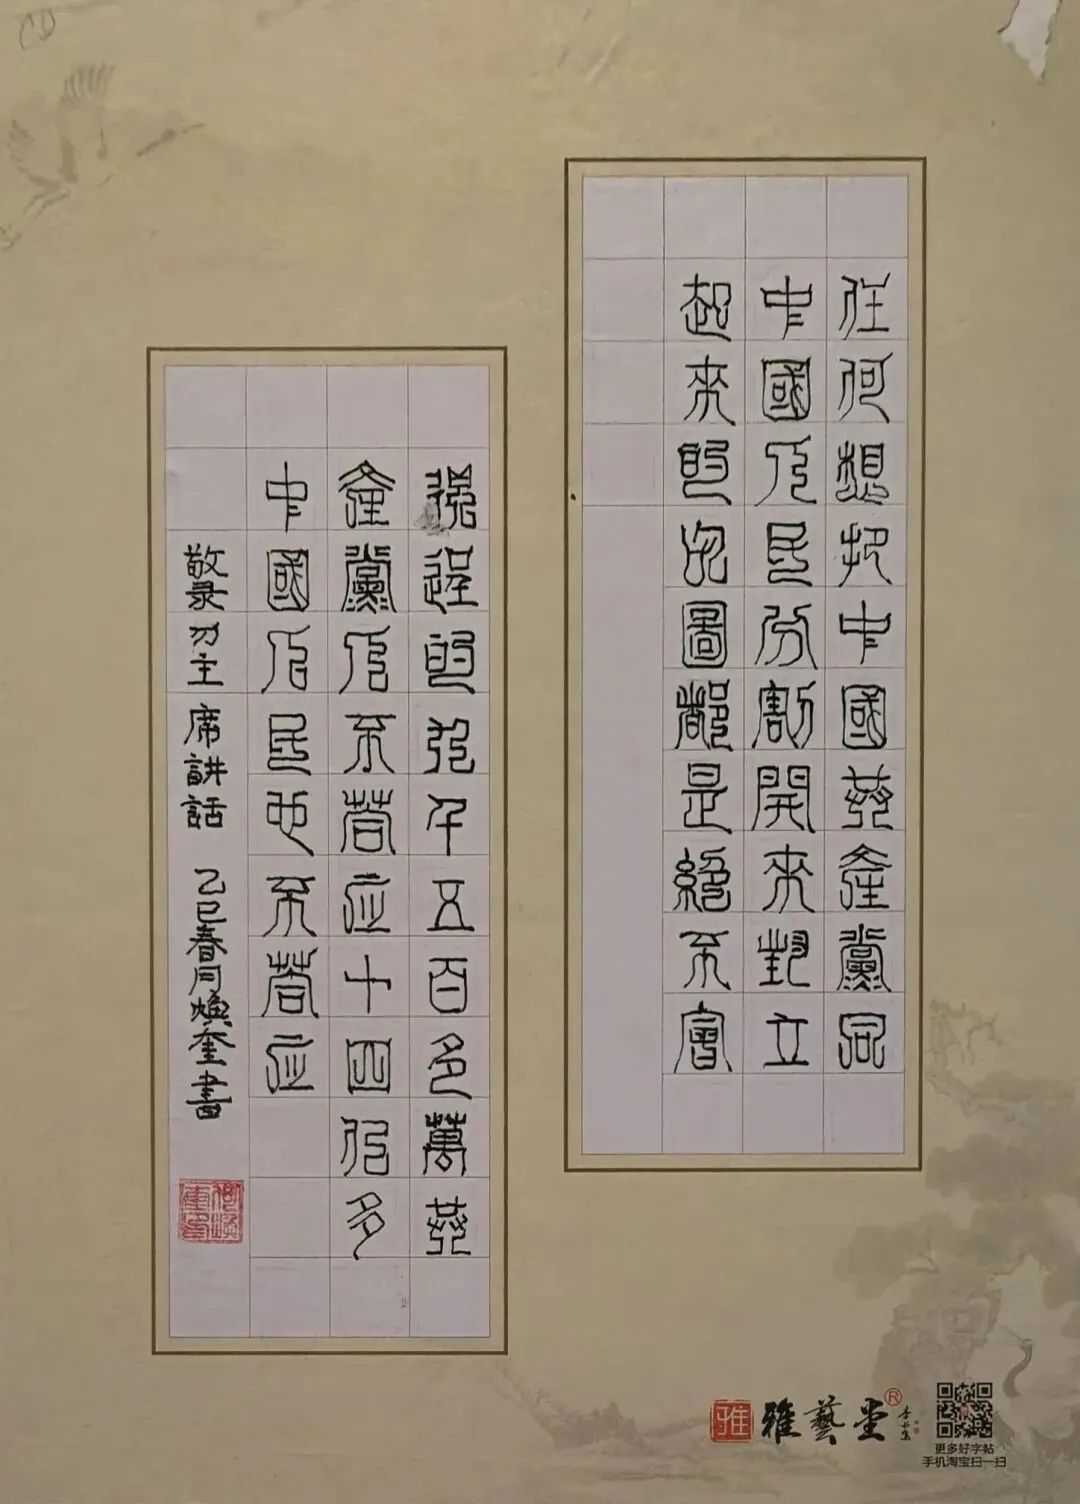 任何想把中國共產黨同
中國人民分割開來對立
起來的企圖都是絕不會
得逞的九千五百多萬共
產黨人不答应十四億多
中國人民也不答应
敬录习主席講話 乙巳春月煥奎書
雅
雅藝堂®
更多好字帖
手机淘宝扫一扫